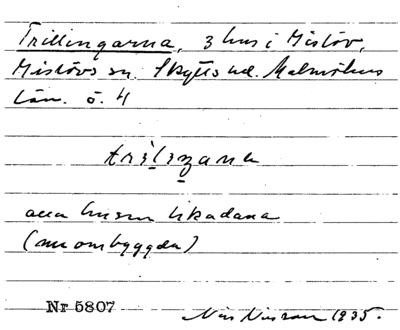 Trillingarna, 3 hus i Mislöv,
Mislövs sn. Skytts hd. Malmöhus
län. ö. 4
alla husen likadana
(nu ombyggda)
Nr 5807
Nils Nilsson 1935.